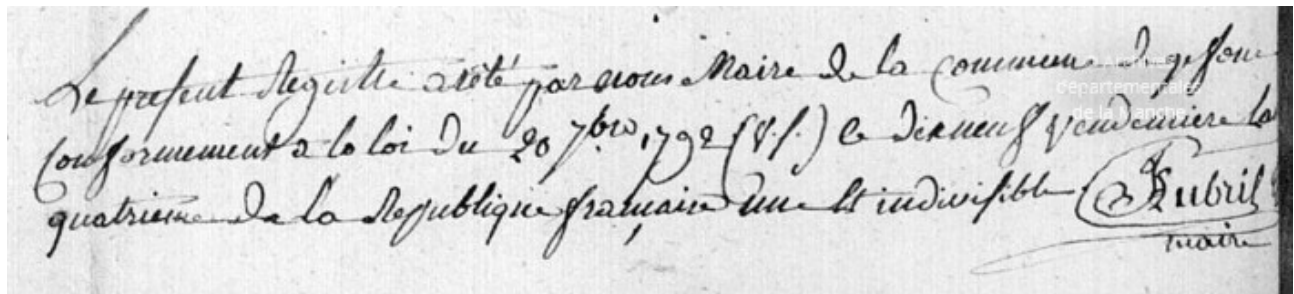 Le present Registre arêté par nous Maire de la Commune de
conformement a la loi du 20 7bre 1792 (v.s.) le dixneuf vendemiere la
quatrieme de la Republique française une et indivisible
maire
departementales
de la Manche